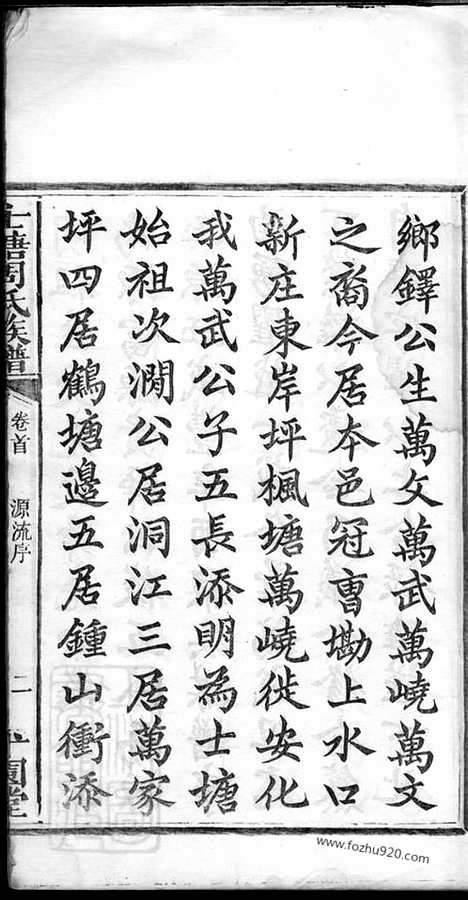 鄉鐸公生萬文萬武萬嶢萬文
之裔今居本邑冠曺勘上水口
新庄東岸坪楓塘萬嶢徙安化
我萬武公子五長添明為士塘
始祖次澗公居洞江三居萬家
坪四居鶴塘邊五居鍾山衝添
士塘周氏族譜
卷首
源流序
二
www.fozhu920.com